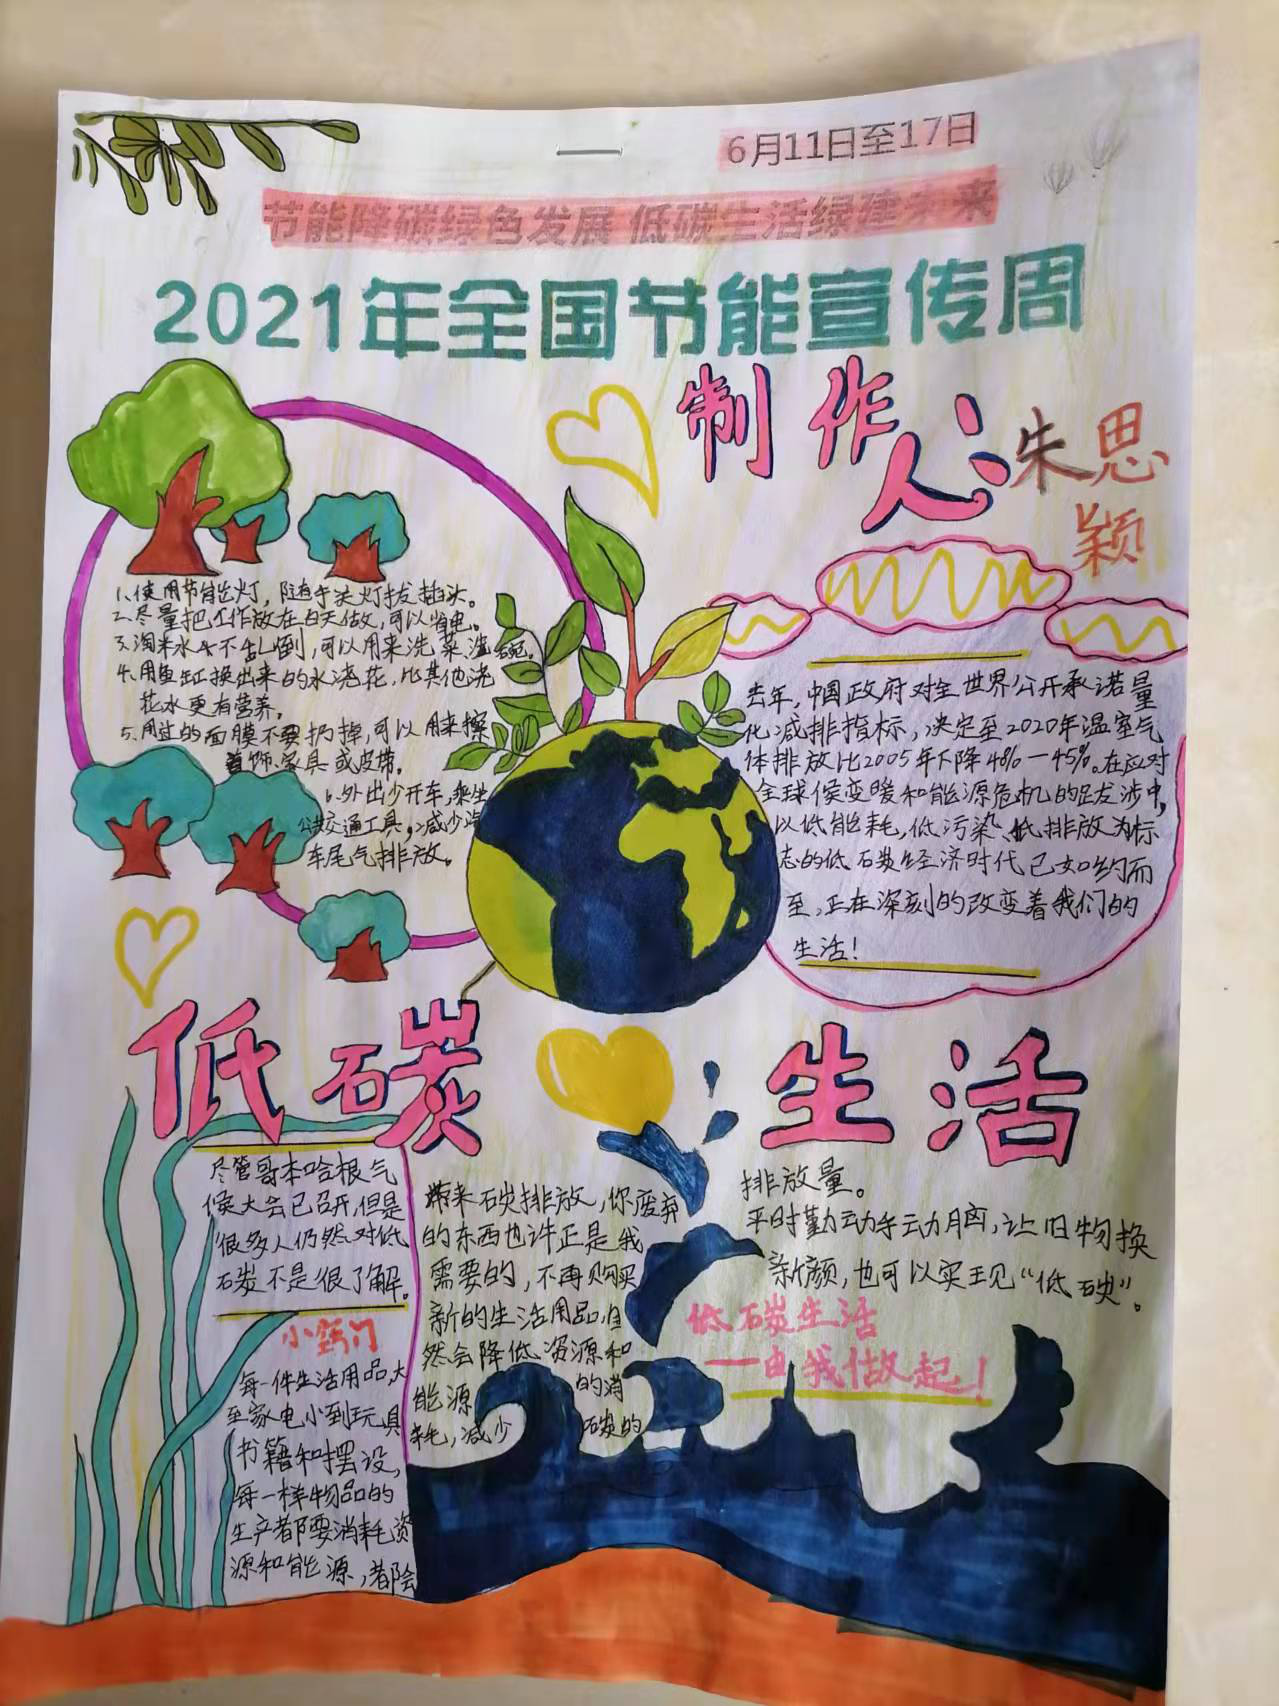 6月11日至17日
节能降碳绿色发展 低碳生活绿建未来
2021年全国节能宣传周
制作人:朱思颖
1、使用节能灯，随手关灯拔插头。
2、尽量把工作放在白天做，可以省电。
3、淘米水千不乱倒，可以用来洗菜洗碗。
4、用鱼缸换出来的水浇花，比其他浇
花水更有营养。
5、用过的面膜不要扔掉，可以用来擦
首饰、家具或皮带。
6、外出少开车，乘坐
公共交通工具，减少汽
车尾气排放。
去年，中国政府对全世界公开承诺量
化减排指标，决定至2020年温室气
体排放比2005年下降40%—45%。在应对
全球候变暖和能源危机的跋涉中，
以低能耗，低污染、低排放为标
志的低碳经济时代已如约而
至，正在深刻的改变着我们的
生活！
低碳生活
尽管哥本哈根气
候大会已召开，但是
很多人仍然对低
碳不是很了解。
小窍门
每一件生活用品，大
至家电小到玩具
书籍和摆设，
每一样物品的
生产都要消耗资
源和能源，都会
带来碳排放，你废弃
的东西也许正是我
需要的，不再购买
新的生活用品，自
然会降低资源和
能源的消
耗，减少碳的
排放量。
平时勤动手动脑，让旧物换
新颜，也可以实现“低碳”。
低碳生活
——由我做起！